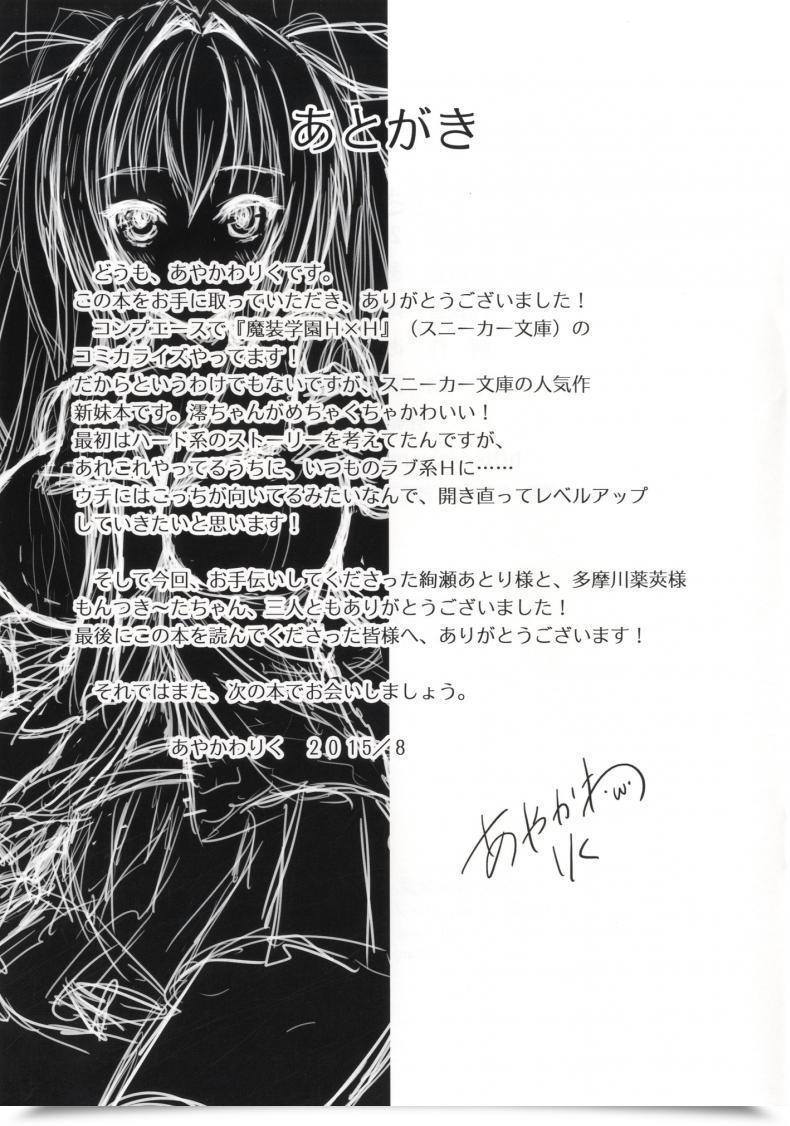 あとがき
どうも、あやかわりくです。
この本をお手に取っていただき、ありがとうございました！
コンプエースで『魔装学園Ｈ×Ｈ』（スニーカー文庫）の
コミカライズやってます！
だからというわけでもないですが、スニーカー文庫の人気作
新妹本です。澪ちゃんがめちゃくちゃかわいい！
最初はハード系のストーリーを考えてたんですが、
あれこれやってるうちに、いつものラブ系Ｈに……
ウチにはこっちが向いてるみたいなんで、開き直ってレベルアップ
していきたいと思います！
そして今回、お手伝いしてくださった絢瀬あとり様と、多摩川薬莢様
もんつき～たちゃん、三人ともありがとうございました！
最後にこの本を読んでくださった皆様へ、ありがとうございます！
それではまた、次の本でお会いしましょう。
あやかわりく　２０１５／８
あやかわ
りく